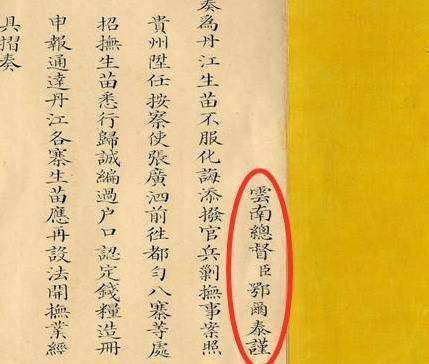 雲南總督臣鄂爾泰謹
奏為丹江生苗不服化誨添撥官兵剿撫事案照
貴州陞任按察使張廣泗前往都勻八寨等處
招撫生苗悉行歸誠編過户口認定錢糧造冊
申報通達丹江各寨生苗應再設法開撫業經
具摺奏